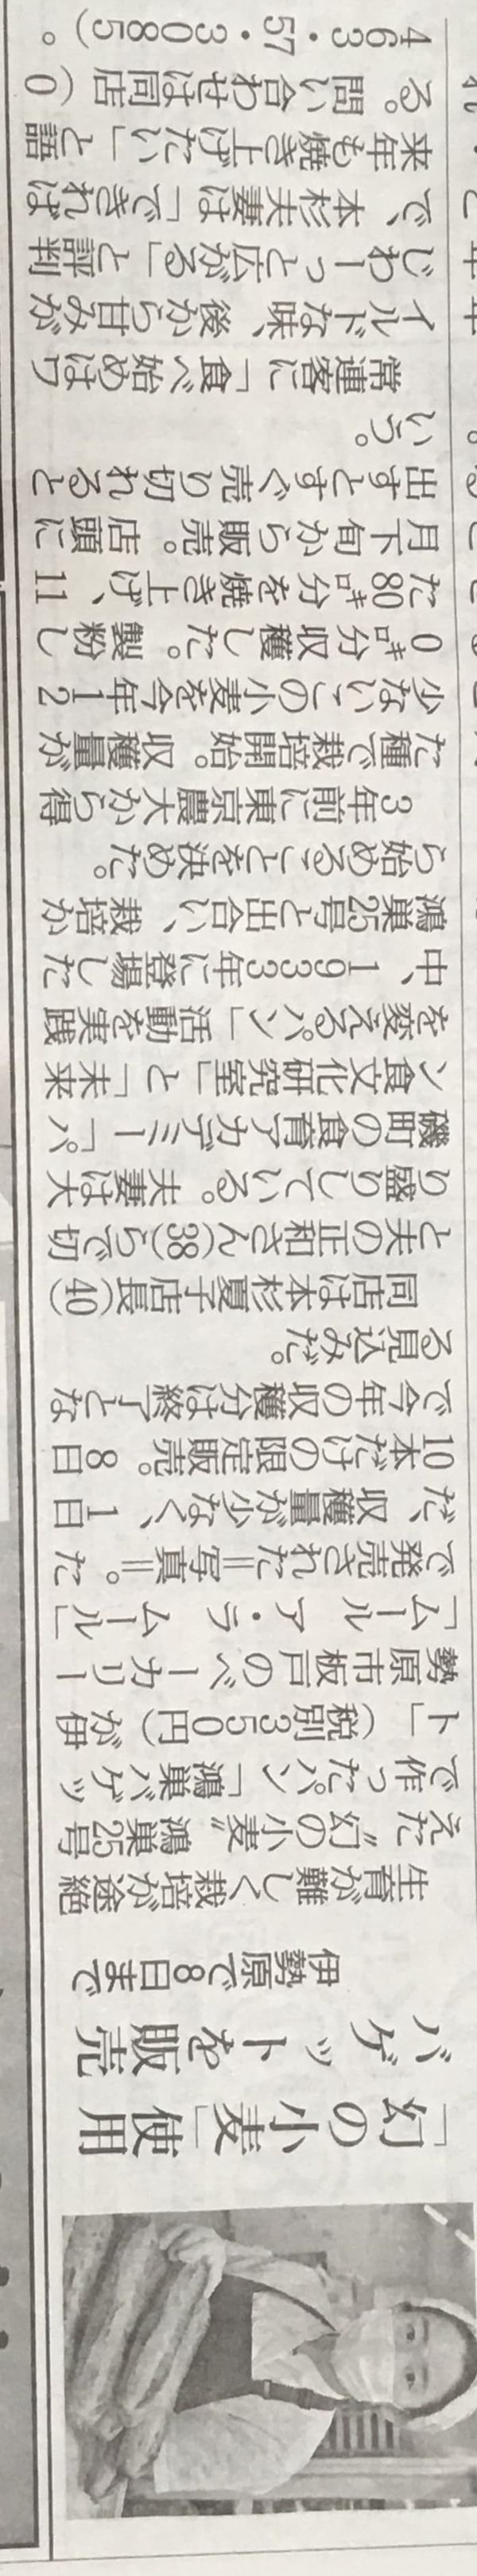 「幻の小麦」使用
バゲットを販売
伊勢原で8日まで
生育が難しく栽培が途絶
えた〝幻の小麦〟鴻巣25号
で作ったパン「鴻巣バゲッ
ト」(税別350円)が伊
勢原市板戸のベーカリー
「ムール ア・ラ ムール」
で発売された=写真=。た
だ、収穫量が少なく、1日
10本だけの限定販売。8日
で今年の収穫分は終了とな
る見込みだ。
同店は本杉夏子店長(40)
と夫の正和さん(38)らで切
り盛りしている。夫妻は大
磯町の食育アカデミー「パ
ン食文化研究室」と「未来
を変えるパン」活動を実践
中、1933年に登場した
鴻巣25号と出合い、栽培か
ら始めることを決めた。
3年前に東京農大から得
た種で栽培開始。収穫量が
少ないこの小麦を今年12
0㌔分収穫した。製粉し
た80㌔分を焼き上げ、11
月下旬から販売。店頭に
出すとすぐ売り切れると
いう。
常連客に「食べ始めはワ
イルドな味、後から甘みが
じわーっと広がる」と評判
で、本杉夫妻は「できれば
来年も焼き上げたい」と語
る。問い合わせは同店(0
463・57・3085)。